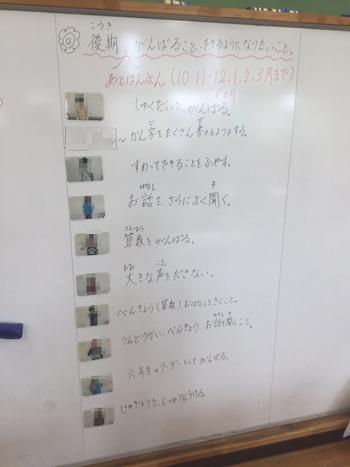 後期 がんばること、できるようになりたいこと。
こうき
あとはんぶん(10・11・12、1、2、3月まで)
6か月
しゅくだいを、がんばる。
~かん字をたくさん書けるようにする。
すわってできることをふやす。
お話を、さらによく聞く。
算数をがんばる。
大きな声をださない。
べんきょう(算数)お口なしをきくこと。
うんどうかい、べんきょう、お話を聞くこと。
六年生のリーダーとして がんばる。
じゅぎょうを、しっかりうける。